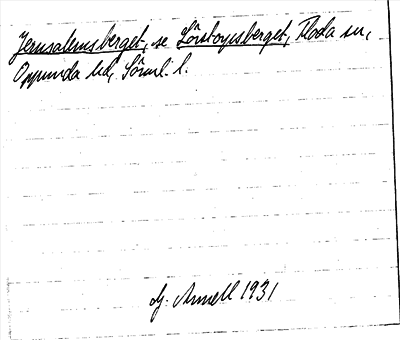 Jerusalemsberget, se Lövstogsberget, Floda sn,
Oppunda hd, Sörml. l.
G. Annell 1931